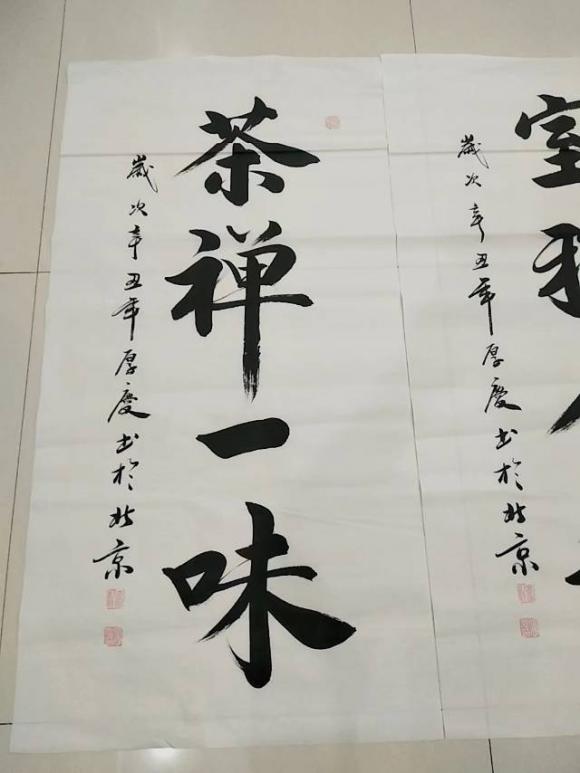 茶禅一味
歲次辛丑年厚慶书於北京
室
歲次辛丑年厚慶书於北京